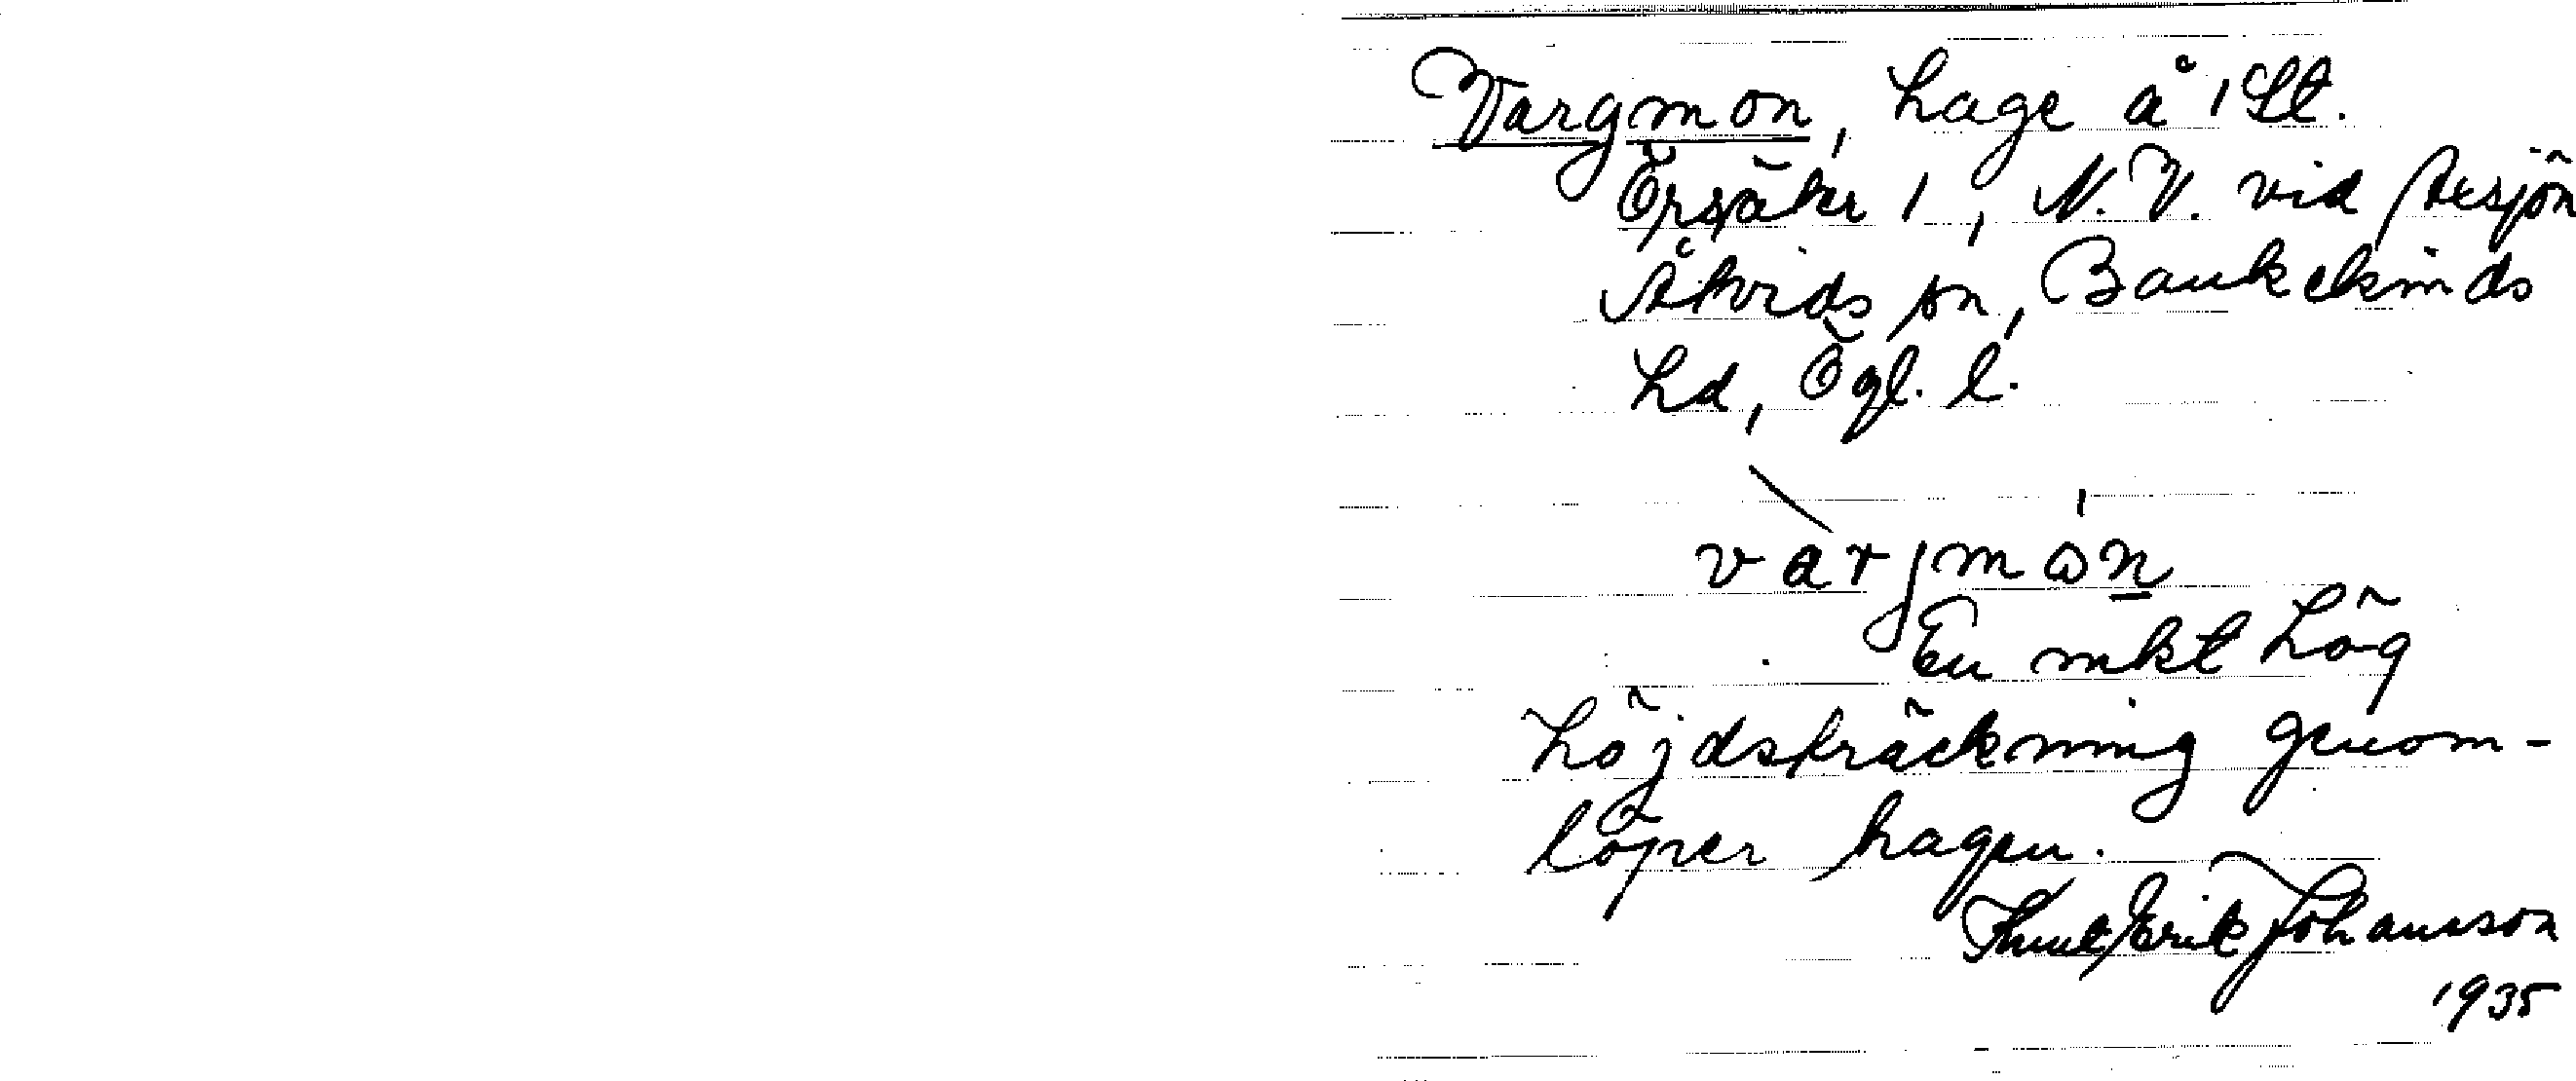 Vargmon, hage å 1 St.
Örsäter 1, N.V. vid
Åtvids sn, Bankekinds
hd, Ögl. l.
varjmɷn
En mkt hög
höjdsträckning genom-
löper hagen.
Knut Erik Johansson
1935